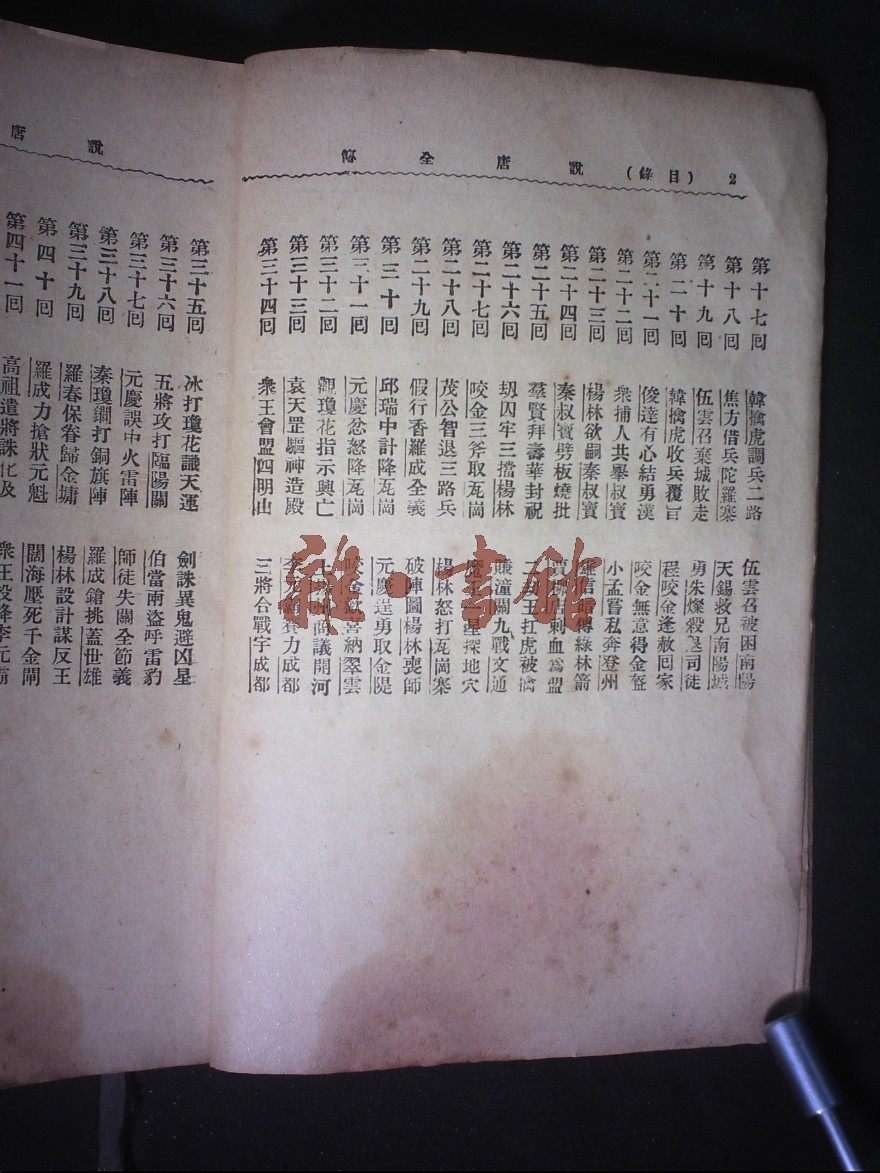 說唐全傳 (目錄) 2
第十七回 韓擒虎調兵二路 伍雲召被困南陽
第十八回 焦方借兵陀羅寨 天錫救兄南陽城
第十九回 伍雲召棄城敗走 勇朱燦殺退司徒
第二十回 韓擒虎收兵覆旨 程咬金逢赦回家
第二十一回 俊達有心結勇漢 咬金無意得金盔
第二十二回 衆捕人共舉叔寶 小孟嘗私奔登州
第二十三回 楊林欲嗣秦叔寶 羅信暗傳綠林箭
第二十四回 秦叔寶劈板燒批 賈柳店刺血爲盟
第二十五回 羣賢拜壽華封祝 二王扛虎被擒
第二十六回 刼囚牢三擋楊林 賺潼關九戰文通
第二十七回 咬金三斧取瓦崗 魔王星探地穴
第二十八回 茂公智退三路兵 楊林怒打瓦崗寨
第二十九回 假行香羅成全義 破陣圖楊林喪師
第三十回 邱瑞中計降瓦崗 元慶逞勇取金隄
第三十一回 元慶忿怒降瓦崗 咬金喜納翠雲
第三十二回 觀瓊花指示興亡 商議開河
第三十三回 袁天罡驅神造殿 李賽力成都
第三十四回 衆王會盟四明山 三將合戰宇成都
說唐
第三十五回 冰打瓊花識天運 劍誅異鬼避凶星
第三十六回 五將攻打臨陽關 伯當兩盜呼雷豹
第三十七回 元慶誤中火雷陣 師徒失關全節義
第三十八回 秦瓊鐧打銅旗陣 羅成鎗挑蓋世雄
第三十九回 羅春保眷歸金墉 楊林設計謀反王
第四十回 羅成力搶狀元魁 闊海壓死千金閘
第四十一回 高祖遣將誅化及 衆王投降李元霸
雅·書館